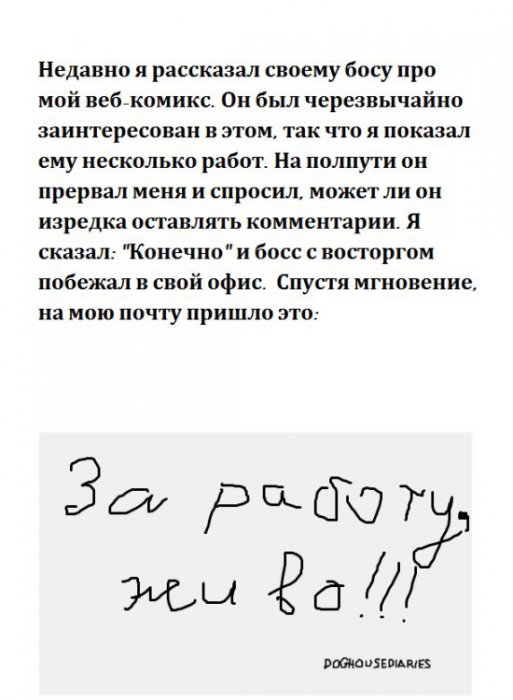 Недавно я рассказал своему босу про
мой веб-комикс. Он был черезвычайно
заинтересован в этом, так что я показал
ему несколько работ. На полпути он
прервал меня и спросил, может ли он
изредка оставлять комментарии. Я
сказал: "Конечно" и босс с восторгом
побежал в свой офис. Спустя мгновение,
на мою почту пришло это:
За работу,
живо!!!
DOGHOUSEDIARIES